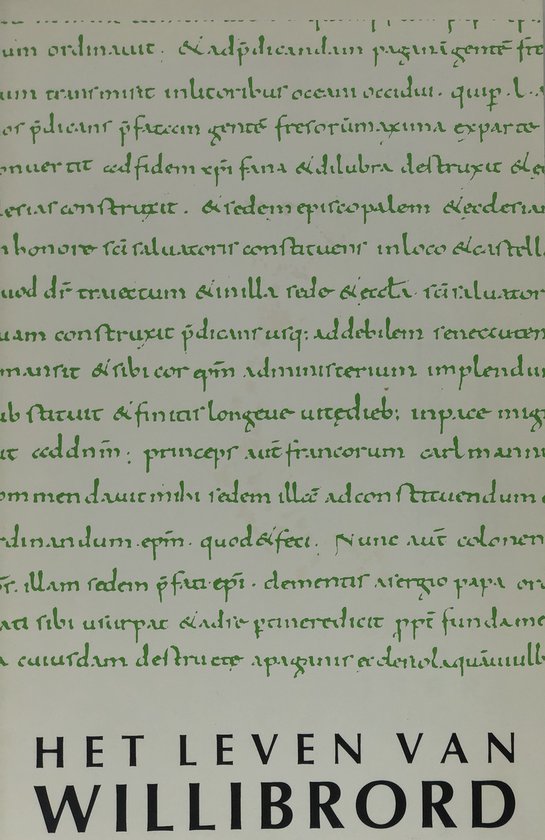 um ordinauit . & adp̄dicandam paganā gentē fre
um transmisit inlitoribus oceani occidui . quip̱ . l .
os p̄dicans p̄fatam gentē fresorūmaxima exparte
onuertit adfidem xp̄i fana & dilubra destruxit & ec
lesias construxit . & sedem episcopalem & ecclesiam
n honore sc̄i saluatoris constituens inloco & castell
uod dr̄ traiectum & inilla sede & eccl̄a sc̄i saluator
uam construxit p̄dicans usq; addebilem senectutem
mansit & sibi cor ep̄m administerium implendum
ub stituit & finitis longeue uitę dieb; inpace mig
it ad dn̄m ; princeps aūt francorum carlmannus
ommendauit mihi sedem illā adconstituendum &
rdinandum . ep̄m . quod & feci . Nunc aūt colonen
s̄ . illam sedem p̄fati ep̄i . clementis asergio papa or
ati sibi usurpat & adse ptineredicit ppt̄ fundame
a cuiusdam destructe apaganis ecclesiolaquāuuilb
HET LEVEN VAN
WILLIBRORD